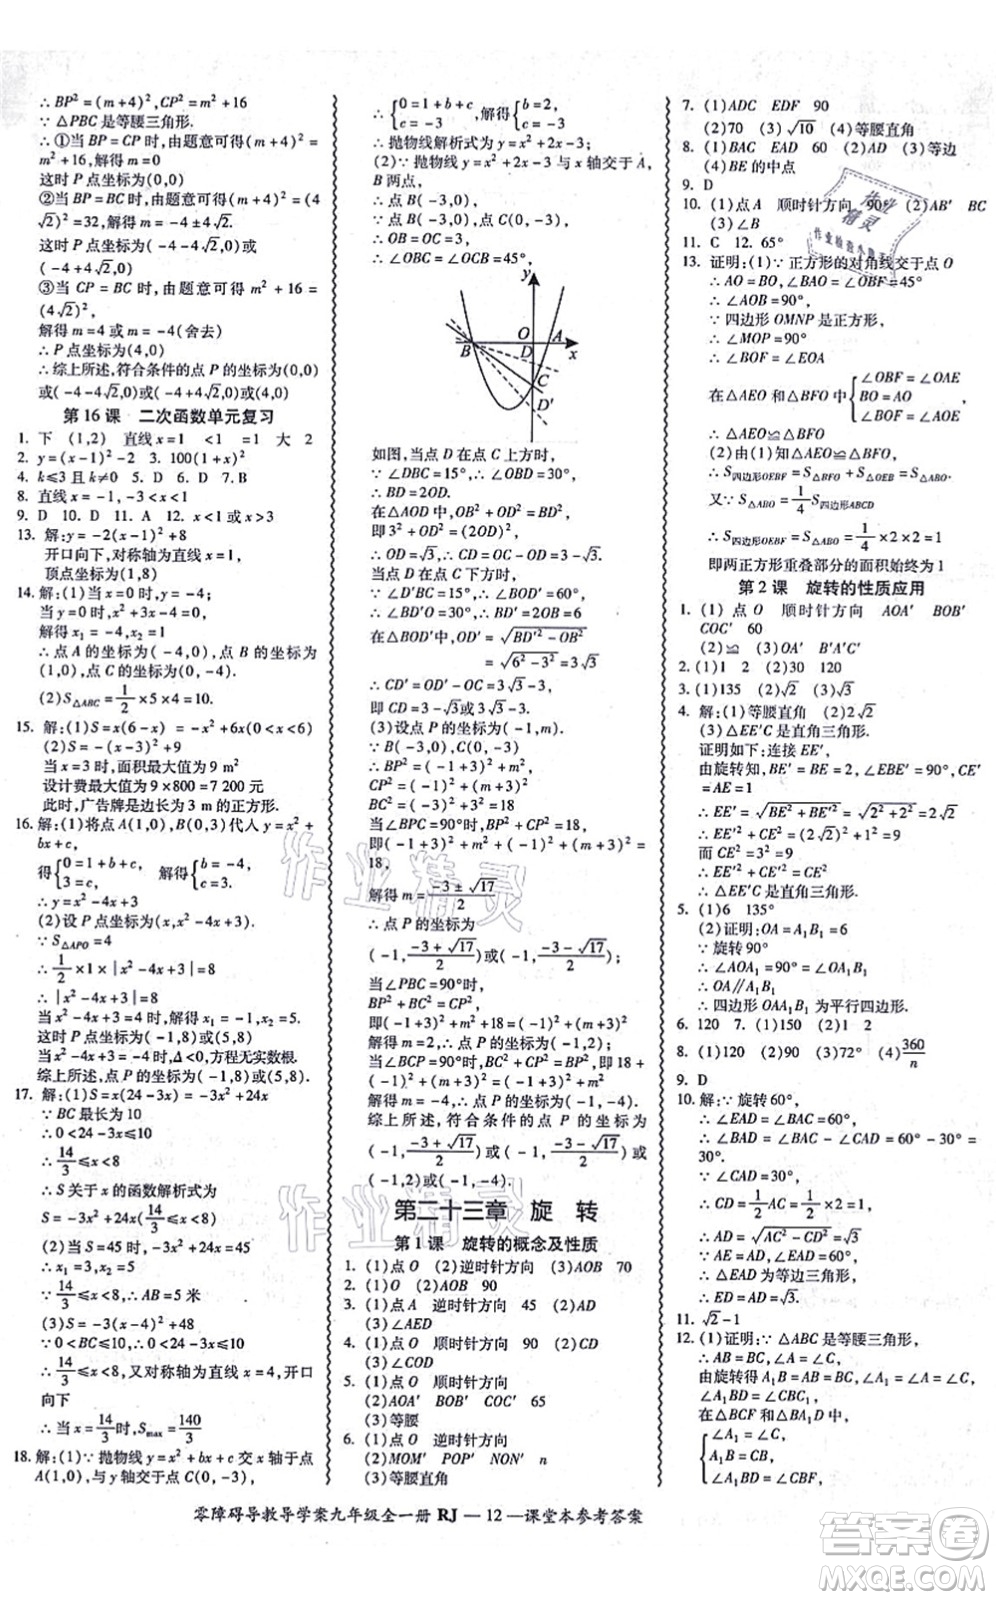 ∴BP²=(m+4)²,CP²=m²+16
∵△PBC是等腰三角形.
∴①当BP=CP时,由题意可得(m+4)²=
m²+16,解得m=0
这时P点坐标为(0,0)
②当BP=BC时,由题意可得(m+4)²=
(4√2)²=32,解得m=-4±4√2
这时P点坐标为(-4-4√2,0)或
(-4+4√2,0)
③当BC=CP时,由题意可得m²+16=
(4√2)²,
解得m=4或m=-4(舍去)
∴P点坐标为(4,0)
∴综上所述,符合条件的点P的坐标为(0,0)
或(-4-4√2,0)或(-4+4√2,0)或(4,0)
第16课 二次函数单元复习
1. 下 (1,2) 直线x=1 <1 =1 大 2
2. y=(x-1)²-2 3. 100(1+x)²
4. k≤3且k≠0 5. D 6. D 7. B
8. 直线x=-1,-3<x<1
9. D 10. D 11. A 12. x<1或x>3
13. 解:y=-2(x-1)²+8
开口向下,对称轴为直线x=1,
顶点坐标为(1,8)
14. 解:(1)当x=0时,y=-4;
当y=0时,x²+3x-4=0,
解得x₁=-4,x₂=1,
∴点A的坐标为(-4,0),点B的坐标为
(1,0),点C的坐标为(0,-4).
(2)S△ABC=1/2×5×4=10.
15. 解:(1)S=x(6-x)=-x²+6x(0<x<6)
(2)S=-(x-3)²+9
当x=3时,面积最大值为9 m²
设计费最大值为9×800=7 200元
此时,广告牌是边长为3 m的正方形.
16. 解:(1)将点A(1,0),B(0,3)代入y=x²+
bx+c,
得{0=1+b+c, 3=c. 解得{b=-4, c=3.
∴y=x²-4x+3
(2)设P点坐标为(x,x²-4x+3)
∵S△APO=4
∴1/2×1×|x²-4x+3|=4
∴|x²-4x+3|=8
当x²-4x+3=8时,解得x₁=-1,x₂=5.
这时P点坐标为(-1,8)或(5,8)
当x²-4x+3=-8时,Δ<0,方程无实数根.
综上所述,P点坐标为(-1,8)或(5,8).
17. 解:(1)S=x(24-3x)=-3x²+24x
∵BC最大长为10
∴0<24-3x≤10
∴14/3≤x<8
∴S关于x的函数解析式为
S=-3x²+24x(14/3≤x<8)
(2)当S=45时,-3x²+24x=45
∴x₁=3(舍去),x₂=5
∴当S=45时,AB=5米
(3)S=-3x²+24x=-3(x-4)²+48
∵0<24-3x≤10
∴14/3≤x<8,又对称轴为直线x=4,开口
向下
∴当x=14/3时,Smax=140/3
18. 解:(1)∵抛物线y=x²+bx+c与x轴于点
A(1,0),与y轴交于点C(0,-3),
∴{0=1+b+c, c=-3,解得{b=2, c=-3.
∴抛物线解析式为y=x²+2x-3
(2)∵抛物线y=x²+2x-3与x轴交于A,
B两点,
∴点B(-3,0),
∵点B(-3,0),点C(0,-3)
∴OB=OC=3,
∴∠OBC=∠OCB=45°,
y
O
A
B
D
x
C
D′
如图,当点D在点C上方时,
∵∠DBC=15°,∴∠OBD=30°,
∴BD=2OD.
在△AOD中,OB²+OD²=BD²,
即3²+OD²=(2OD)²,
∴OD=√3,∴CD=3-√3
当点D在点C下方时,
∵∠D′BC=15°,∴∠OBD′=60°,
∴∠BD′O=30°,∴BD′=2OB=6
在△BOD′中,OD′=√(BD′²-OB²)
=√(6²-3²)=3√3
∴CD′=OD′-OC=3√3-3
∴CD=3-√3或3√3-3
(3)设点P的坐标为(-1,m).
∵B(-3,0),C(0,-3),
∴BP²=(-1+3)²+m²,
CP²=(-1)²+(m+3)²
BC²=(-3)²+3²=18
当∠BPC=90°时,BP²+CP²=18,
即(-1+3)²+m²+(-1)²+(m+3)²=
18,
解得m=(-3±√17)/2
∴点P的坐标为
(-1,(-3+√17)/2)或(-1,(-3-√17)/2)
当∠PBC=90°时,
BP²+BC²=CP²,
即(-1+3)²+m²+18=1+(m+3)²
解得m=2,∴点P的坐标为(-1,2).
当∠BCP=90°时,BC²+CP²=BP²,即18+
(-1)²+(m+3)²=(-1+3)²+m²
解得m=-4,∴点P的坐标为(-1,-4).
综上所述,符合条件的点P的坐标为
(-1,(-3+√17)/2)或(-1,(-3-√17)/2)或
(-1,2)或(-1,-4).
第二十三章 旋 转
第1课 旋转的概念及性质
1. (1)点O (2)逆时针方向 (3)AOB 70
2. (1)O (2)AOB 90
3. (1)点A 逆时针方向 45 (2)AD
(3)∠AED
4. (1)点O 顺时针方向 90 (2)CD
(3)∠COD
5. (1)点O 顺时针方向
(2)AOA′ BOB′ COC′ 65
(3)等腰
6. (1)点O 逆时针方向
(2)MOM′ POP′ NON′ 90
(3)等腰直角
7. (1)ADC EDF 90
(2)70 (3)√10 (4)等腰直角
8. (1)BAC EAD 60 (2)AD (3)等边
(4)BE的中点
9. D
10. (1)点A 顺时针方向 90° (2)AB′ BC
(3)∠B
11. C 12. 65°
13. 证明:(1)∵正方形的对角线交于点O
∴AO=BO,∠BAO=∠OBF=45°
∴∠AOB=90°,
∵四边形OMNP是正方形,
∴∠MOP=90°
∴∠BOF=∠EOA
在△AEO和△BFO中{∠OBF=∠OAE BO=AO ∠BOF=∠EOA,
∴△AEO≌△BFO
(2)由(1)知△AEO≌△BFO,
∴S四边形OEBF=S△BFO+S△OEB=S△ABO,
又∵S△ABO=1/4S四边形ABCD
∴S四边形OEBF=S△ABO=1/4×2×2=1
即两正方形重叠部分的面积始终为1
第2课 旋转的性质应用
1. (1)点O 顺时针方向 AOA′ BOB′
COC′ 60
(2)≌ (3)OA′ B′A′C′
2. (1)1 2 (2)30 120
3. (1)135 (2)√2
4. 解:(1)等腰直角 (2)2√2
(3)△EE′C是直角三角形.
证明如下:连接EE′,
由旋转知,BE′=BE=2,∠EBE′=90°,CE′
=AE=1
∴EE′=√(BE²+BE′²)=√(2²+2²)=2√2
∴EE′²+CE′²=(2√2)²+1²=9
而CE²=3²=9
∴EE′²+CE′²=CE²
∴△EE′C是直角三角形.
5. (1)6 135°
(2)证明:OA=A₁B₁=6
∵旋转90°
∴∠AOA₁=90°=∠OA₁B₁
∴OA∥A₁B₁
∴四边形OAA₁B₁为平行四边形.
6. 120 7. (1)150 (2)1 2
8. (1)120 (2)90 (3)72° (4)360/n
9. D
10. 解:∵旋转60°,
∴∠EAD=∠BAC=60°,
∴∠BAE=∠BAC-∠CAD=60°-30°=
30°.
∴CD=1/2AC=1/2×2=1,
∴BD=2+1=3
∵△EAD为等边三角形.
∴AD=BE=2.
11. √2-1
12. (1)证明:∵△ABC是等腰三角形,
∴AB=BC,∠A=∠C,
由旋转得A₁B=AB=BC,∠A₁=∠A=∠C,
∠A₁BD=∠CBC₁,
在△BCF和△BA₁D中
{∠A₁=∠C, A₁B=BC, ∠A₁BD=∠CBF
零障碍导教导学案九年级全一册 RJ — 12 —课堂本参考答案
作业精灵
作业精灵
作业精灵
答案圈
MXQE.COM